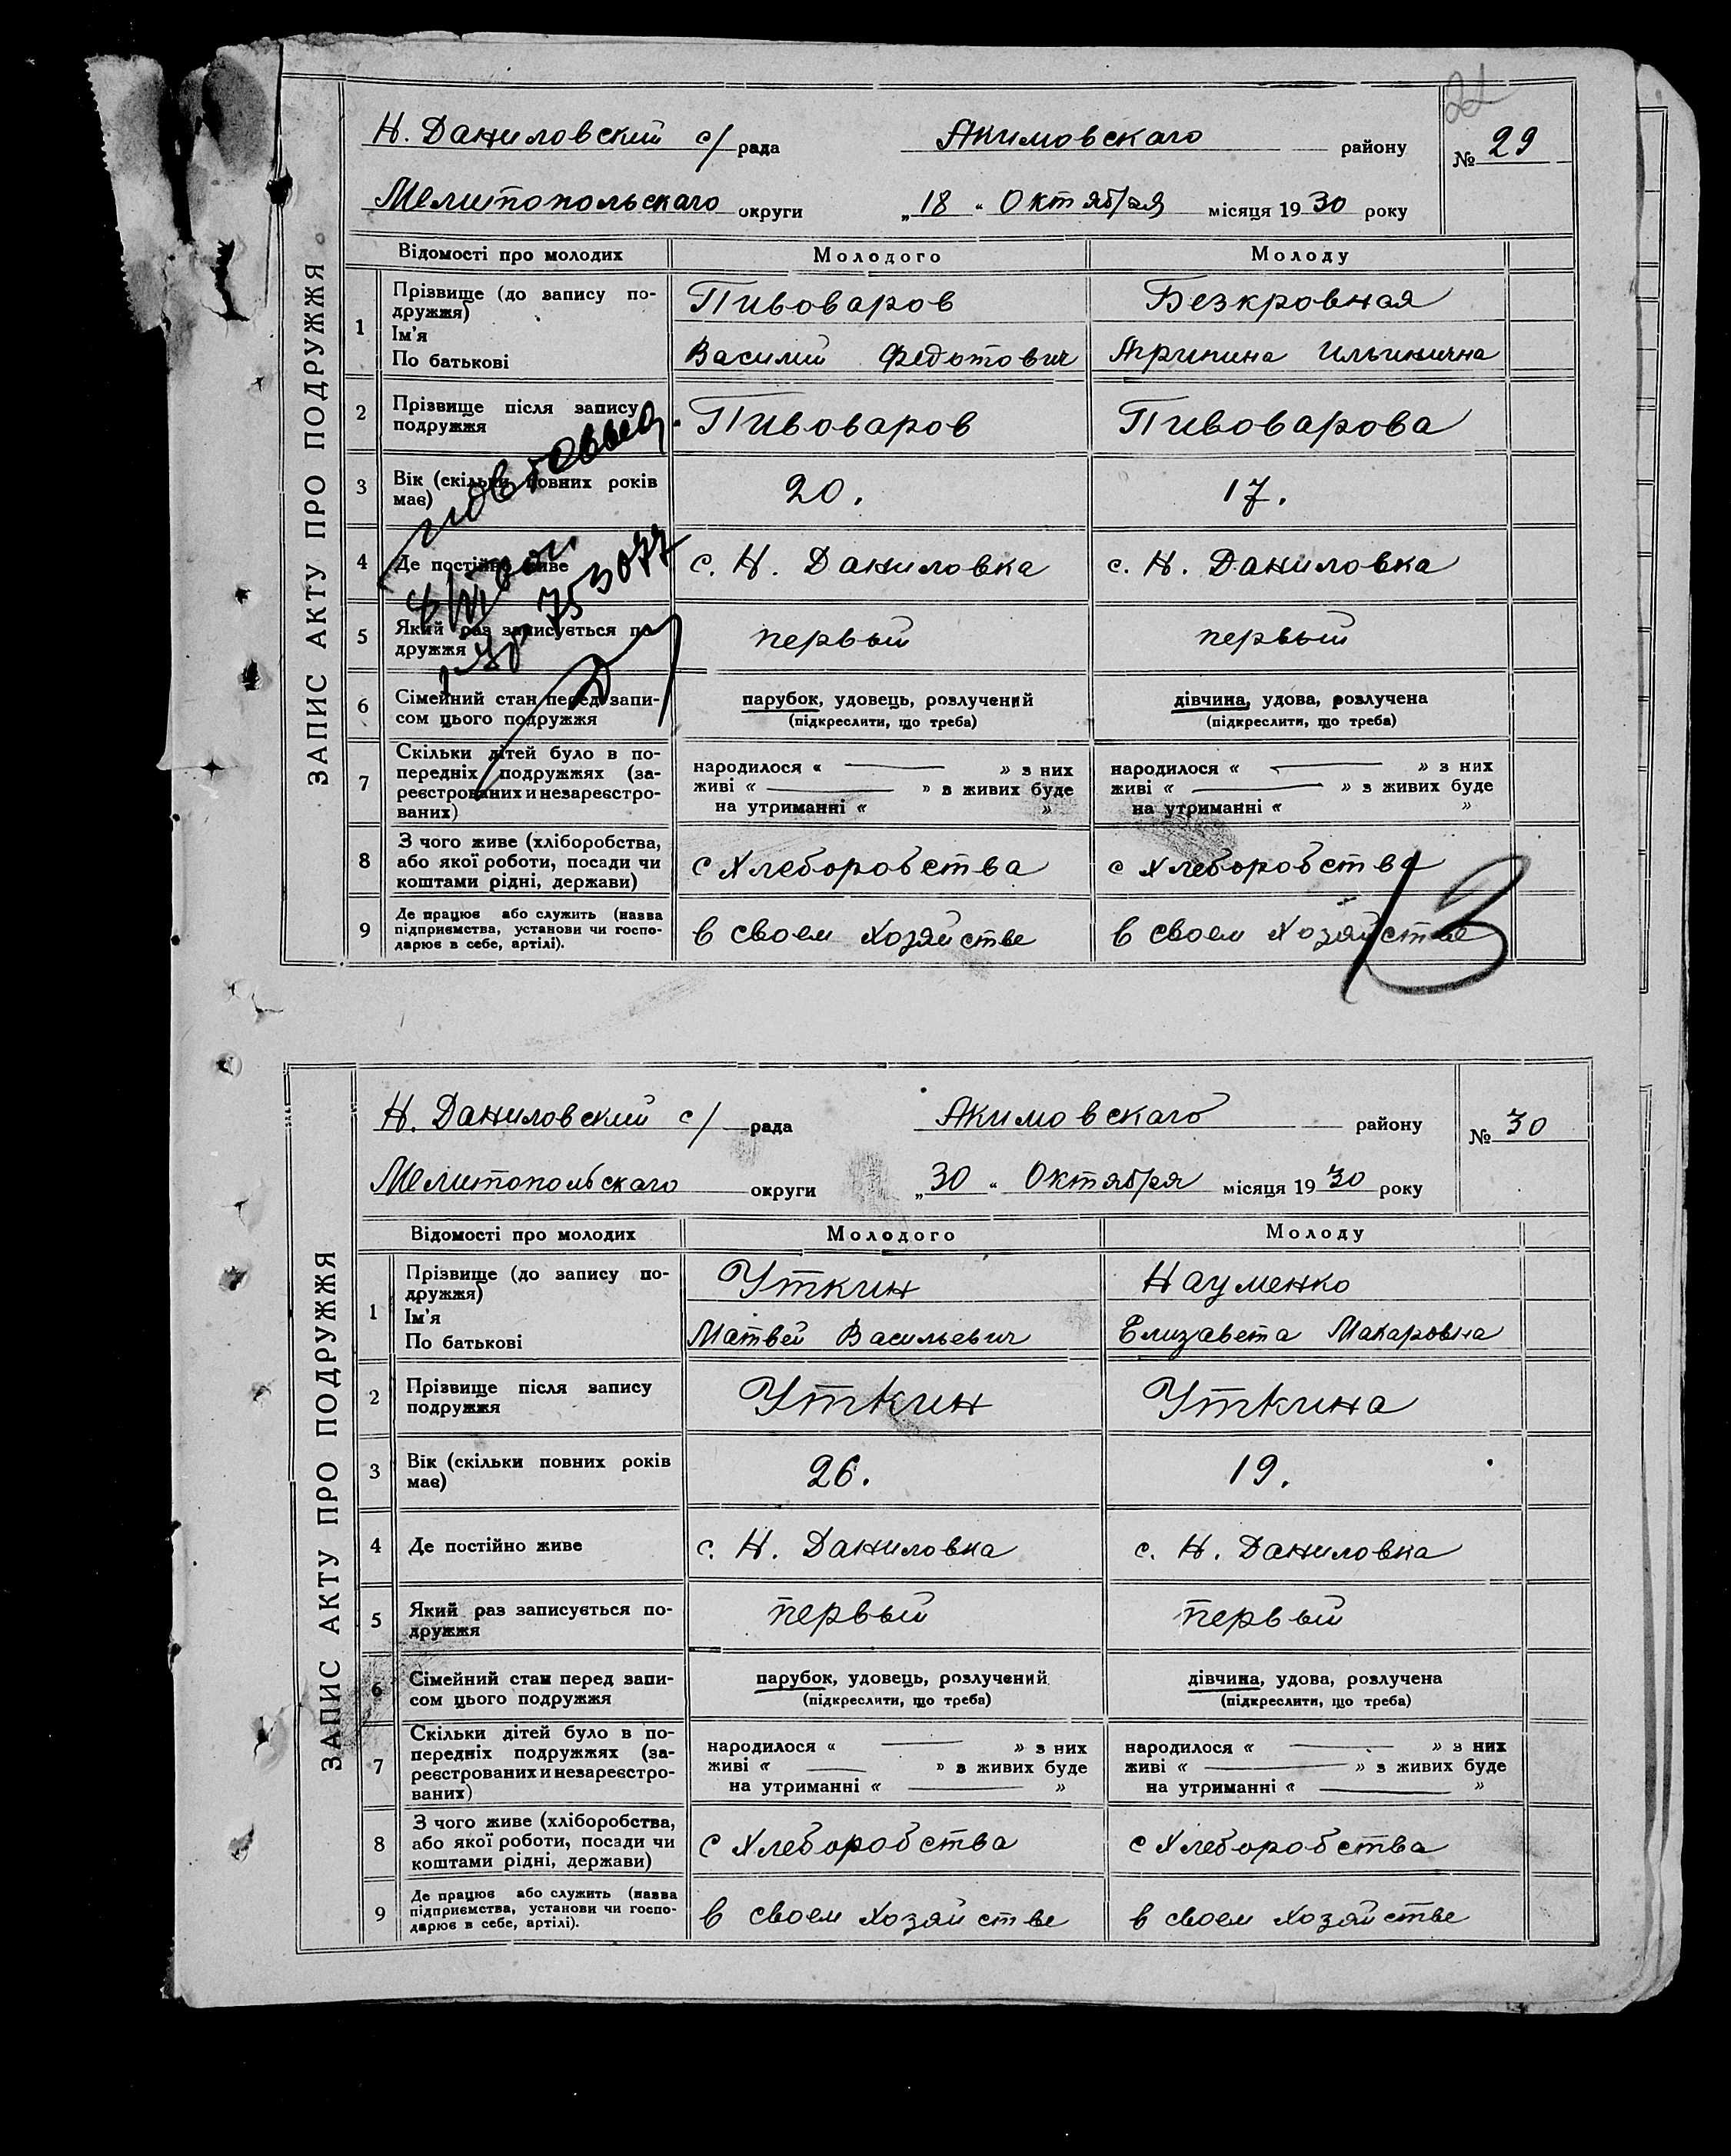 22
Н. Даниловский с/ рада Акимовскаго району № 29
Мелитопольскаго округи „ 18 “ Октября місяця 19 30 року
ЗАПИС АКТУ ПРО ПОДРУЖЖЯ
Відомості про молодих Молодого Молоду
1 Прізвище (до запису по-
дружжя) Пивоваров Безкровная
Ім'я
По батькові Василий Федотович Агрипина Ильинична
2 Прізвище після запису
подружжя Пивоваров Пивоварова
3 Вік (скільки повних років
має) 20. 17.
4 Де постійно живе с. Н. Даниловка с. Н. Даниловка
5 Який раз записується по-
дружжя первый первый
6 Сімейний стан перед запи-
сом цього подружжя
парубок, удовець, розлучений дівчина, удова, розлучена
(підкреслити, що треба) (підкреслити, що треба)
7 Скільки дітей було в по-
передніх подружжях (за-
реєстрованих и незареєстро-
ваних)
народилося « — » з них народилося « — » з них
живі « — » з живих буде живі « — » з живих буде
на утриманні « » на утриманні « »
8 З чого живе (хліборобства,
або якої роботи, посади чи
коштами рідні, держави)
с Хлеборобства с Хлеборобства
9 Де працює або служить (назва
підприємства, установи чи госпо-
дарює в себе, артілі).
в своем Хозяйстве в своем Хозяйстве
13
Н. Даниловский с/ рада Акимовскаго району № 30
Мелитопольскаго округи „ 30 “ Октября місяця 19 30 року
ЗАПИС АКТУ ПРО ПОДРУЖЖЯ
Відомості про молодих Молодого Молоду
1 Прізвище (до запису по-
дружжя) Уткин Науменко
Ім'я
По батькові Матвей Васильевич Елизавета Макаровна
2 Прізвище після запису
подружжя Уткин Уткина
3 Вік (скільки повних років
має) 26. 19.
4 Де постійно живе с. Н. Даниловка с. Н. Даниловка
5 Який раз записується по-
дружжя первый первый
6 Сімейний стан перед запи-
сом цього подружжя
парубок, удовець, розлучений дівчина, удова, розлучена
(підкреслити, що треба) (підкреслити, що треба)
7 Скільки дітей було в по-
передніх подружжях (за-
реєстрованих и незареєстро-
ваних)
народилося « — » з них народилося « — » з них
живі « — » з живих буде живі « — » з живих буде
на утриманні « — » на утриманні « — »
8 З чого живе (хліборобства,
або якої роботи, посади чи
коштами рідні, держави)
с Хлеборобства с Хлеборобства
9 Де працює або служить (назва
підприємства, установи чи госпо-
дарює в себе, артілі).
в своем Хозяйстве в своем Хозяйстве